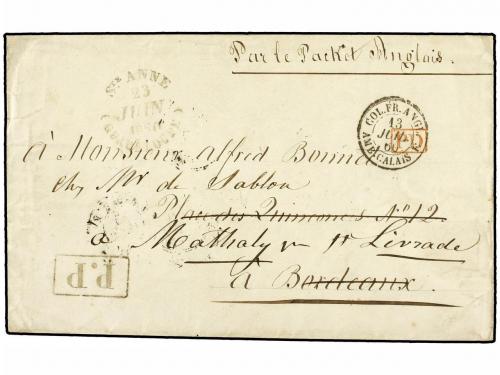 Par le Packet Anglais.
Ste ANNE
23
JUIN
COL. FR. ANG.
13
JUIL
60
AMB. CALAIS
PD
à Monsieur Alfred Bonnet
chez Mr de Sablon
Place des Quinconces No 12
à Mathaly par Ste Livrade
à Bordeaux
P.P